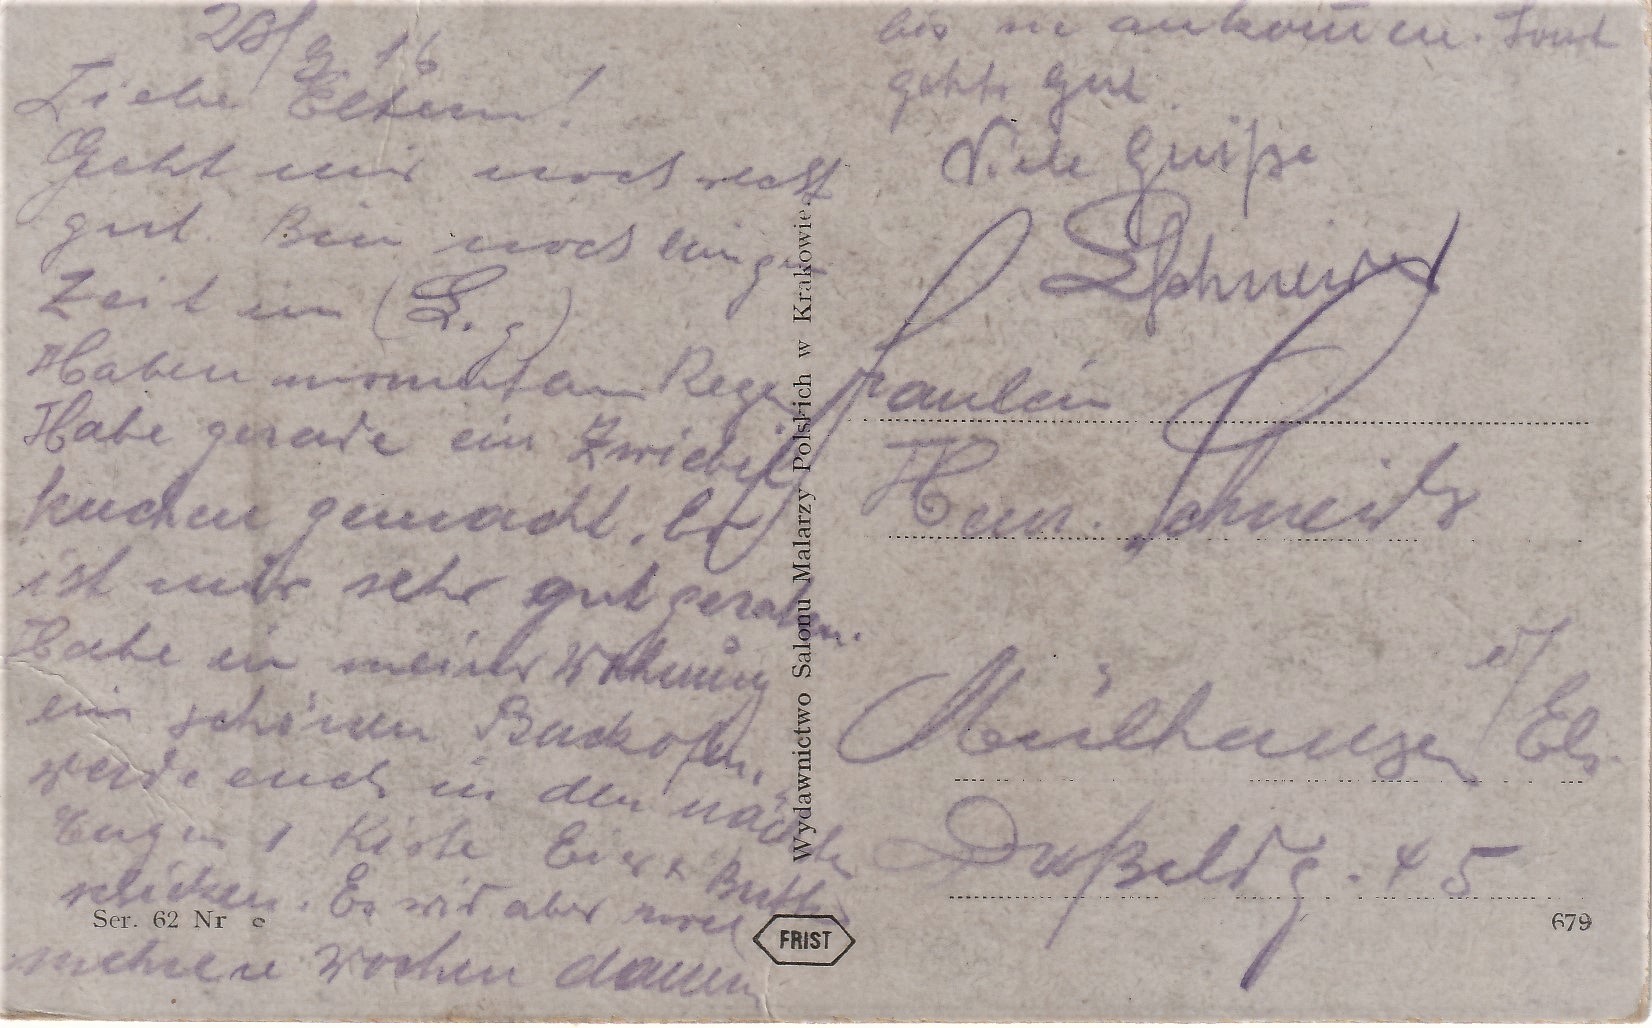 28/9 16
Liebe Eltern!
Geht mir noch recht
gut. Bin noch einige
Zeit in (L. g)
Haben momentan Regen
Habe gerade ein Zwiebel
kuchen gemacht. Er
ist mir sehr gut geraten.
Habe in meiner Wohnung
ein schönen Backofen.
werde euch in den nächsten
Tagen 1 Kiste Eier & Butter
schicken. Es wird aber
mehrere Wochen dauern
bis sie ankommen. Sonst
gehts gut.
Viele Grüße
Schneider
Fräulein
Schneider
Mülhausen i/ Els.
45
Wydawnictwo Salonu Malarzy Polskich w Krakowie.
Ser. 62 Nr
FRIST
679